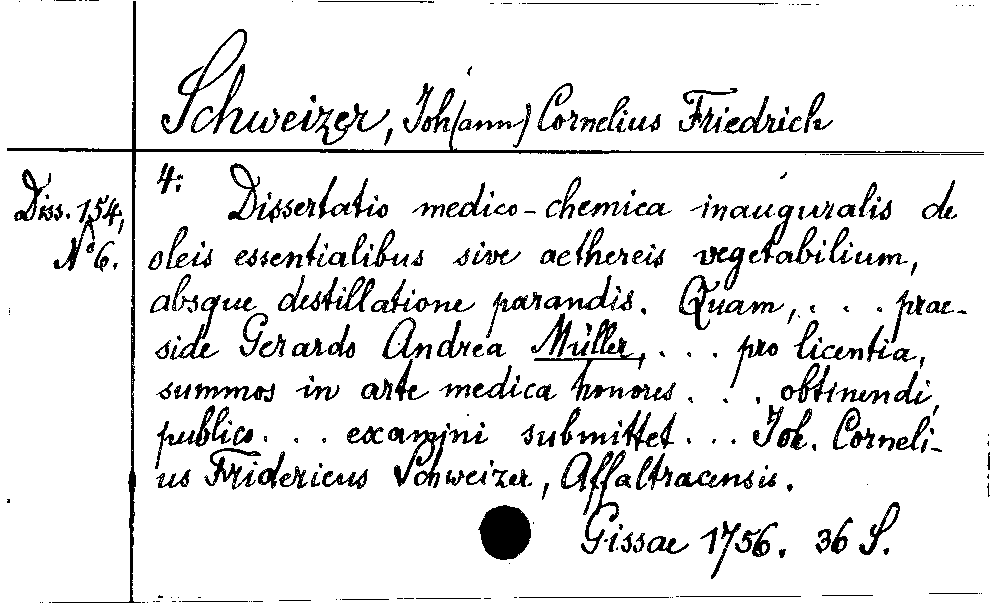 Schweizer, Joh(ann) Cornelius Friedrich
Diss. 154,
No 6.
4:
Dissertatio medico-chemica inauguralis de
oleis essentialibus sive aethereis vegetabilium,
absque destillatione parandis. Quam, . . . prae-
side Gerardo Andrea Müller, . . . pro licentia,
summos in arte medica honores . . . obtinendi,
publico . . . examini submittet . . . Joh. Corneli-
us Fridericus Schweizer, Affaltracensis.
Gissae 1756. 36 S.